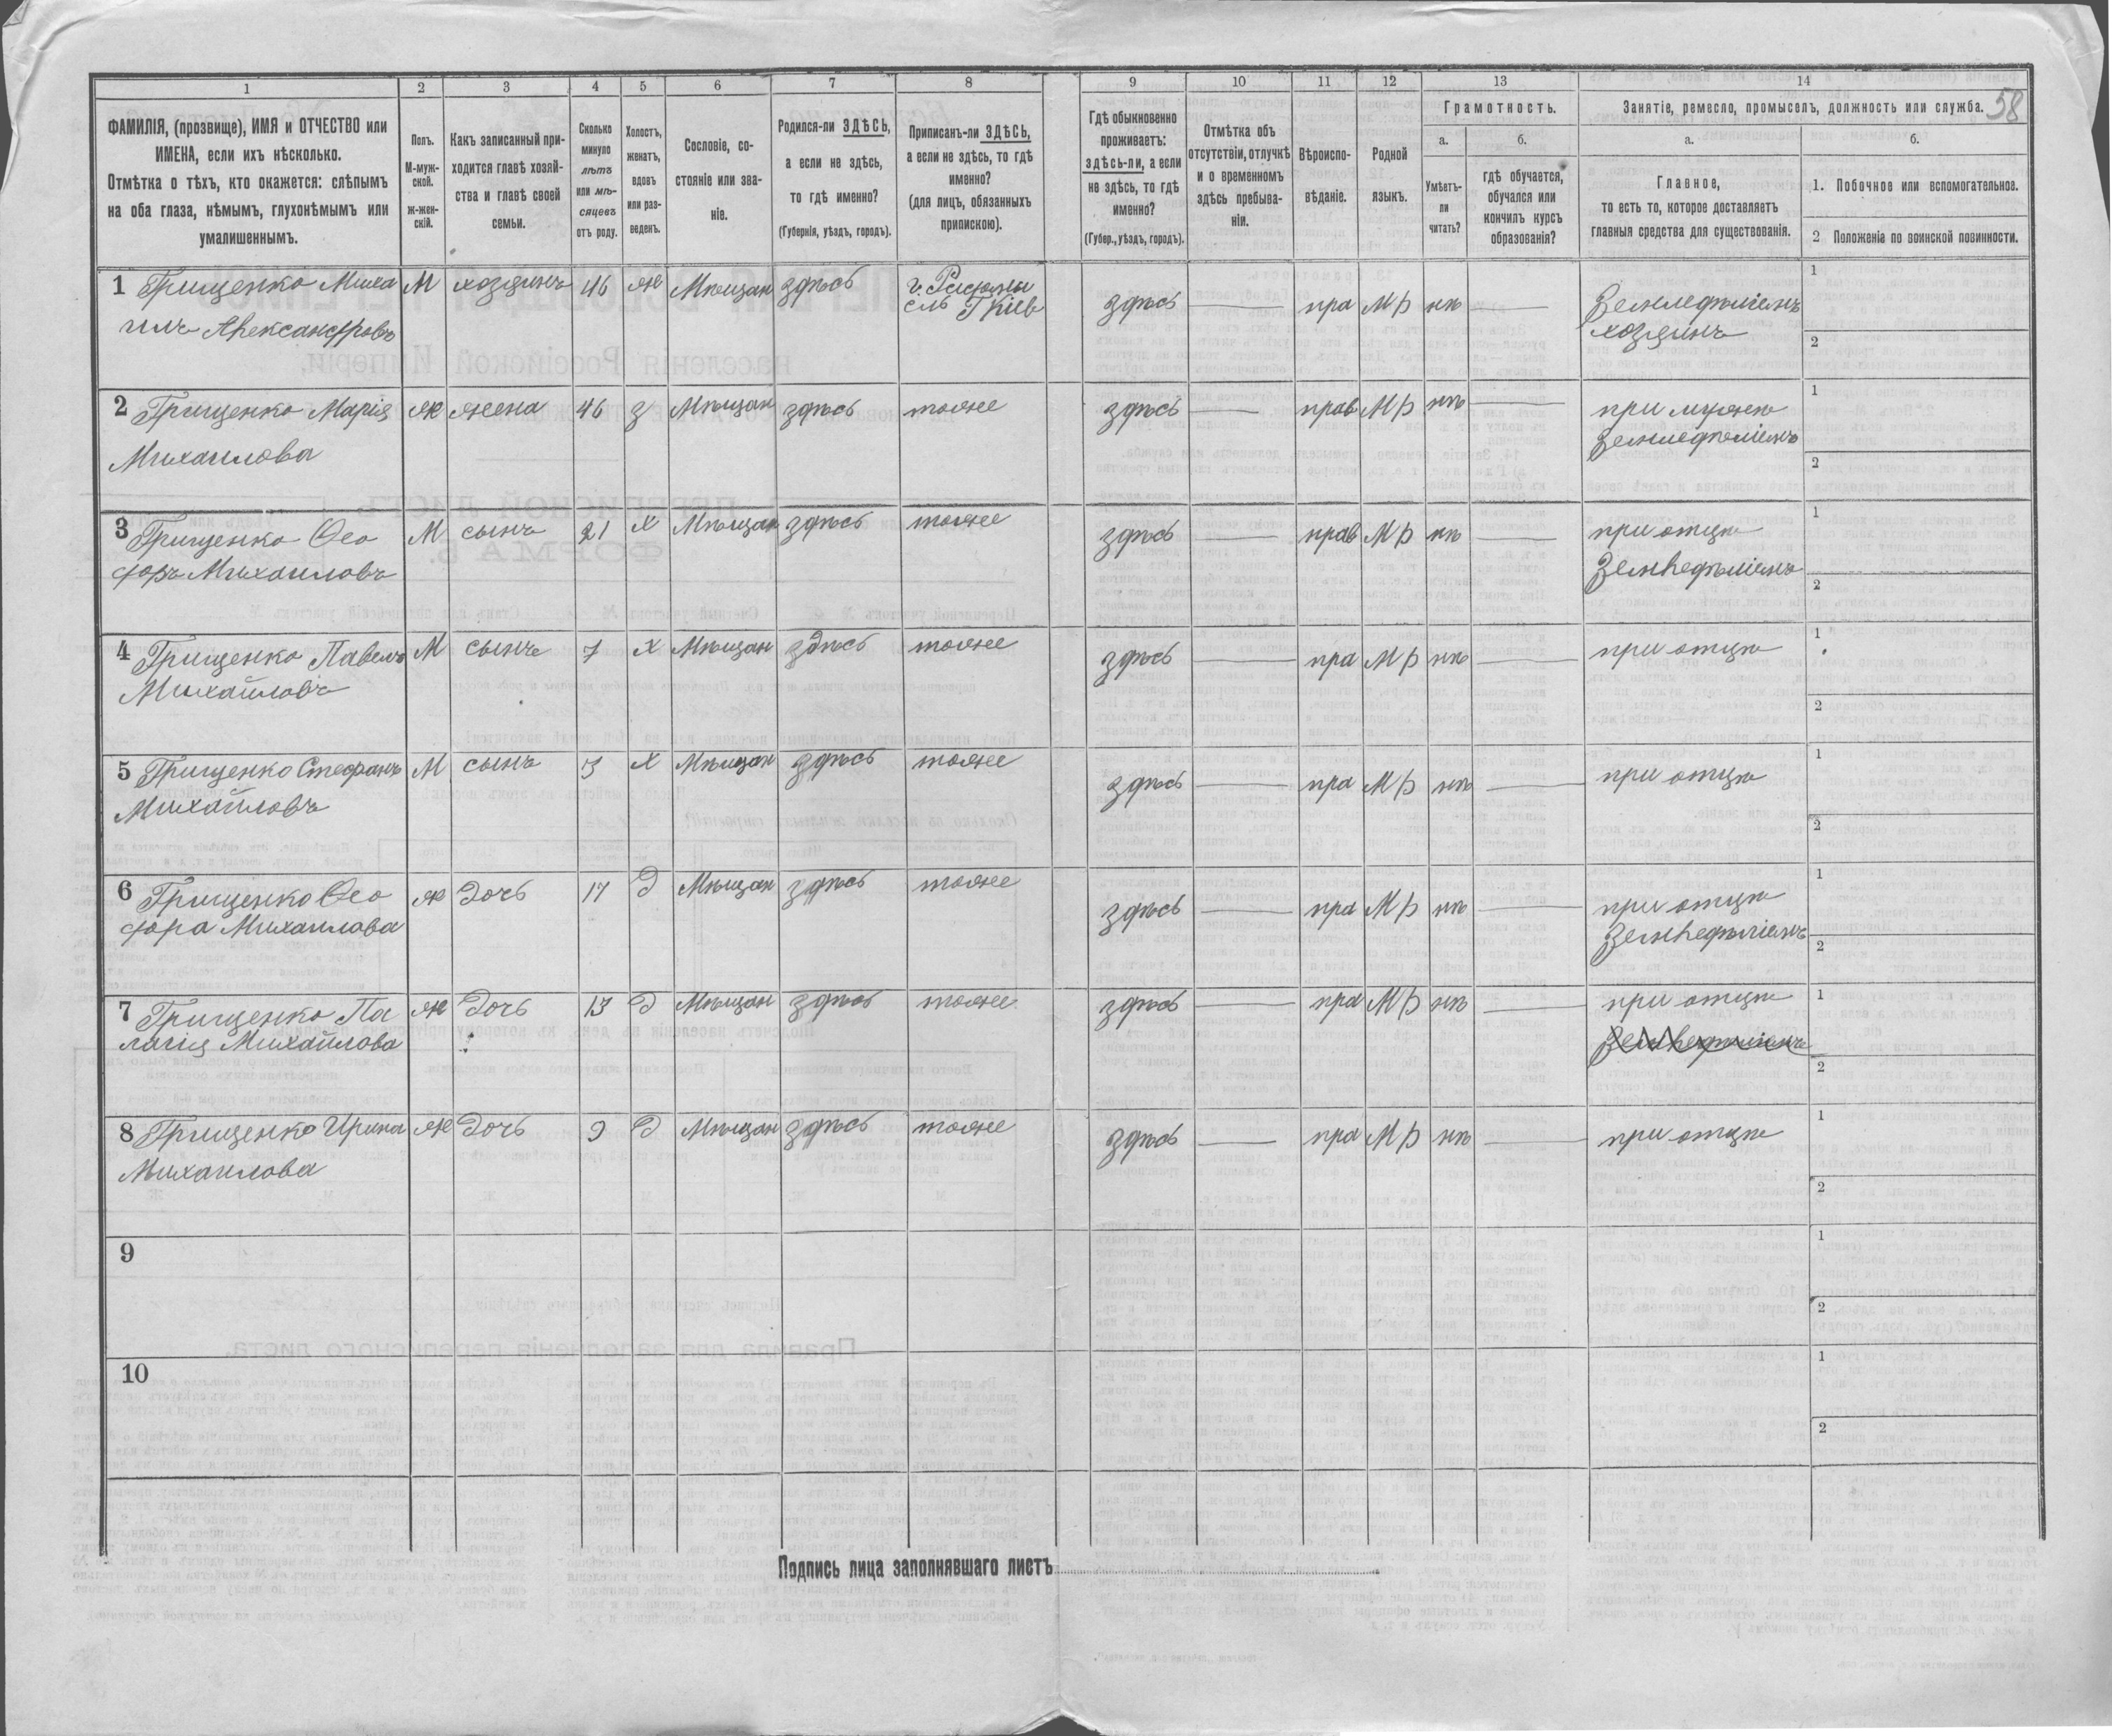 1 2 3 4 5 6 7 8 9 10 11 12 13 14
58
ФАМИЛІЯ, (прозвище), ИМЯ и ОТЧЕСТВО или
ИМЕНА, если ихъ нѣсколько.
Отмѣтка о тѣхъ, кто окажется: слѣпымъ
на оба глаза, нѣмымъ, глухонѣмымъ или
умалишеннымъ.
Полъ.
М-муж-
ской.
ж-жен-
скій.
Какъ записанный при-
ходится главѣ хозяй-
ства и главѣ своей
семьи.
Сколько
минуло
лѣтъ
или мѣ-
сяцевъ
отъ роду.
Холостъ,
женатъ,
вдовъ
или раз-
веденъ.
Сословіе, со-
стояніе или зва-
ніе.
Родился-ли ЗДѢСЬ,
а если не здѣсь,
то гдѣ именно?
(Губернія, уѣздъ, городъ).
Приписанъ-ли ЗДѢСЬ,
а если не здѣсь, то гдѣ
именно?
(для лицъ, обязанныхъ
припискою).
Гдѣ обыкновенно
проживаетъ:
здѣсь-ли, а если
не здѣсь, то гдѣ
именно?
(Губер., уѣздъ, городъ).
Отмѣтка объ
отсутствіи, отлучкѣ
и о временномъ
здѣсь пребыва-
ніи.
Вѣроиспо-
вѣданіе.
Родной
языкъ.
Грамотность.
а.
Умѣетъ-
ли
читать?
б.
гдѣ обучается,
обучался или
кончилъ курсъ
образованія?
Занятіе, ремесло, промыселъ, должность или служба.
а.
Главное,
то есть то, которое доставляетъ
главныя средства для существованія.
б.
1. Побочное или вспомогательное.
2 Положеніе по воинской повинности.
1 Грищенко Миха М хозяинъ 46 ж Мѣщан здѣсь здѣсь — пра М Р нѣ — Земледѣліемъ 1
илъ Александровъ хозяинъ 2
2 Грищенко Марія ж жена 46 з Мѣщан здѣсь тоже здѣсь — прав М Р нѣ — при мужѣ 1
Михаилова Земледѣліемъ 2
3 Грищенко Ѳео М сынъ 21 х Мѣщан здѣсь тоже здѣсь — прав М Р нѣ — при отцѣ 1
доръ Михаиловъ Земледѣліемъ 2
4 Грищенко Павелъ М сынъ 7 х Мѣщан здѣсь тоже здѣсь — пра М Р нѣ — при отцѣ 1
Михайловъ 2
5 Грищенко Стефанъ М сынъ 3 х Мѣщан здѣсь тоже здѣсь — пра М Р нѣ — при отцѣ 1
Михайловъ 2
6 Грищенко Ѳео ж дочь 17 д Мѣщан здѣсь тоже здѣсь — пра М Р нѣ — при отцѣ 1
дора Михаилова Земледѣліемъ 2
7 Грищенко Па ж дочь 13 д Мѣщан здѣсь тоже здѣсь — пра М Р нѣ — при отцѣ 1
лагія Михайлова Земледѣліемъ 2
8 Грищенко Ирина ж дочь 9 д Мѣщан здѣсь тоже здѣсь — пра М Р нѣ — при отцѣ 1
Михаилова 2
9 1
2
10 1
2
Подпись лица заполнявшаго листъ